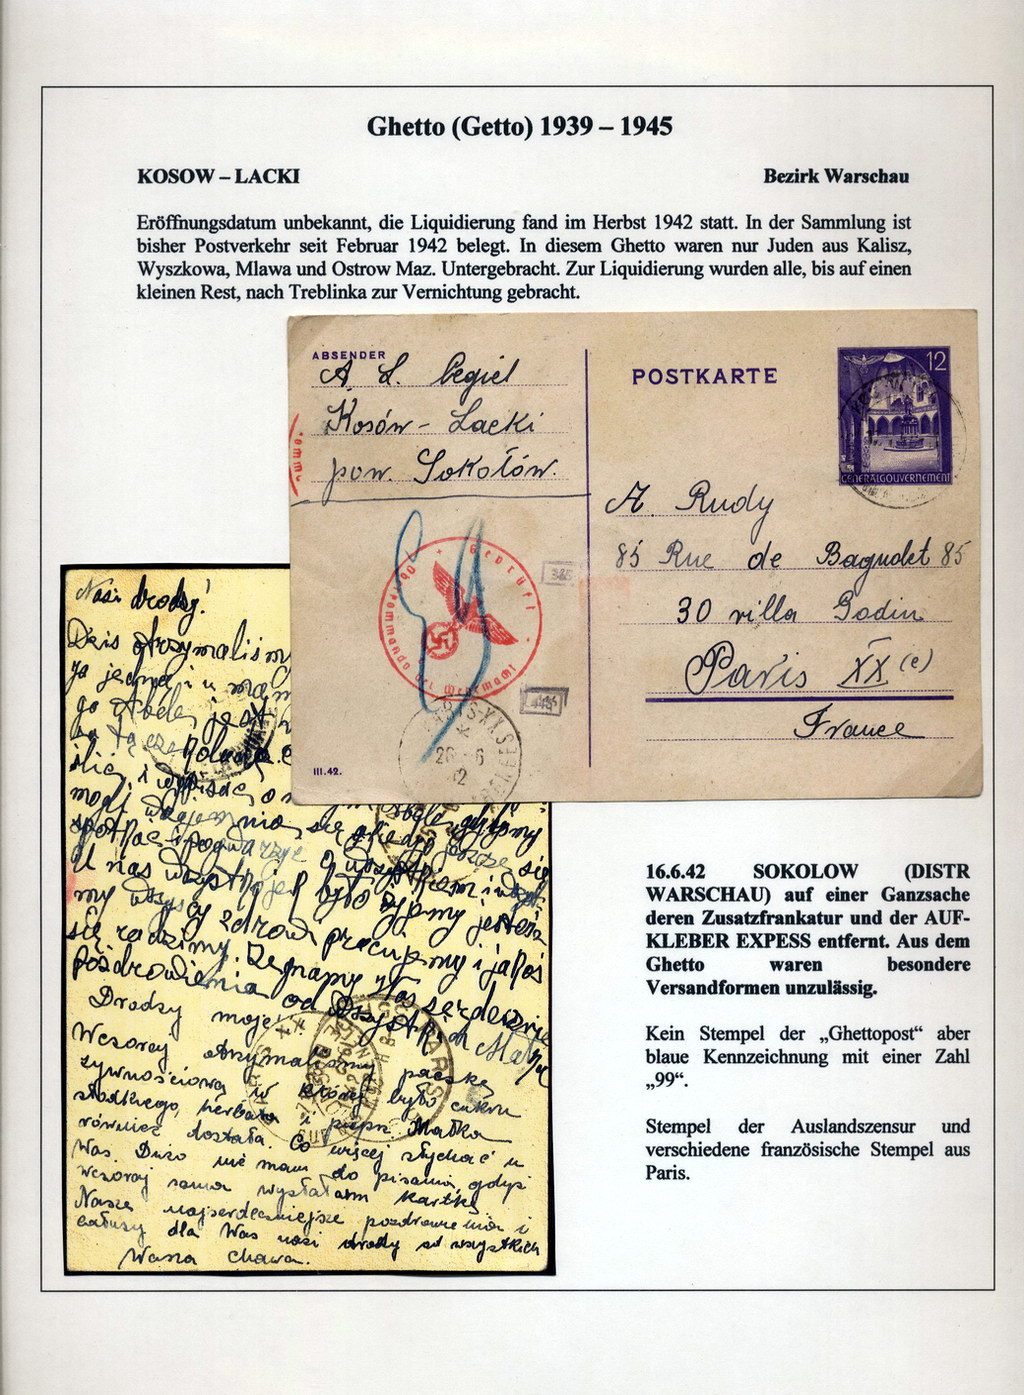 Ghetto (Getto) 1939 – 1945
KOSOW – LACKI
Bezirk Warschau
Eröffnungsdatum unbekannt, die Liquidierung fand im Herbst 1942 statt. In der Sammlung ist
bisher Postverkehr seit Februar 1942 belegt. In diesem Ghetto waren nur Juden aus Kalisz,
Wyszkowa, Mlawa und Ostrow Maz. Untergebracht. Zur Liquidierung wurden alle, bis auf einen
kleinen Rest, nach Treblinka zur Vernichtung gebracht.
ABSENDER
A. L. Cegiel
Kosów - Lacki
pow. Sokołów.
POSTKARTE
12
GENERALGOUVERNEMENT
A. Rudy
85 Rue de Bagnolet 85
30 villa Godin
Paris XX (e)
France
Geprüft
Oberkommando der Wehrmacht
26 - 6
42
III.42.
Nasi drodzy!
Dziś otrzymaliśmy
spotkać i pogwarzyć
U nas wszystko jest
my wszyscy zdrowi pracujemy i jakoś
się radzimy. Żegnamy Was serdecznie
Pozdrowienia od wszystkich
Drodzy moji!
Wczoraj otrzymaliśmy paczkę
żywnościową w której było cukru
słodkiego, herbata i pieprz. Matka
również dostała. Co więcej słychać u
Was. Dużo nie mam do pisania, gdyż
wczoraj sama wysłałam kartkę.
Nasze najserdeczniejsze pozdrowienia i
całusy dla Was nasi drodzy od wszystkich
Wasza Chawa.
16.6.42 SOKOLOW (DISTR
WARSCHAU) auf einer Ganzsache
deren Zusatzfrankatur und der AUF-
KLEBER EXPESS entfernt. Aus dem
Ghetto waren besondere
Versandformen unzulässig.
Kein Stempel der „Ghettopost“ aber
blaue Kennzeichnung mit einer Zahl
„99“.
Stempel der Auslandszensur und
verschiedene französische Stempel aus
Paris.